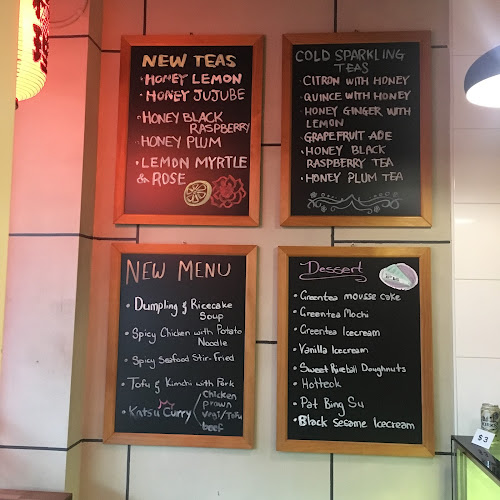 NEW TEAS
• HONEY LEMON
• HONEY JUJUBE
• HONEY BLACK
RASPBERRY
• HONEY PLUM
• LEMON MYRTLE
& ROSE
COLD SPARKLING
TEAS
• CITRON WITH HONEY
• QUINCE WITH HONEY
• HONEY GINGER WITH
LEMON
• GRAPEFRUIT ADE
• HONEY BLACK
RASPBERRY TEA
• HONEY PLUM TEA
NEW MENU
• Dumpling & Ricecake
Soup
• Spicy Chicken with Potato
Noodle
• Spicy Seafood Stir-Fried
• Tofu & Kimchi with Pork
• Katsu Curry
Chicken
prawn
vegi/Tofu
beef
Dessert
• Greentea mousse cake
• Greentea Mochi
• Greentea Icecream
• Vanilla Icecream
• Sweet Riceball Doughnuts
• Hotteok
• Pat Bing Su
• Black Sesame Icecream
$3